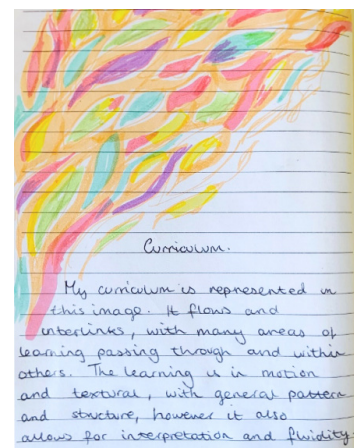 Curriculum.
My curriculum is represented in
this image. It flows and
interlinks, with many areas of
learning passing through and within
others. The learning is in motion
and textural, with general pattern
and structure, however it also
allows for interpretation and fluidity.